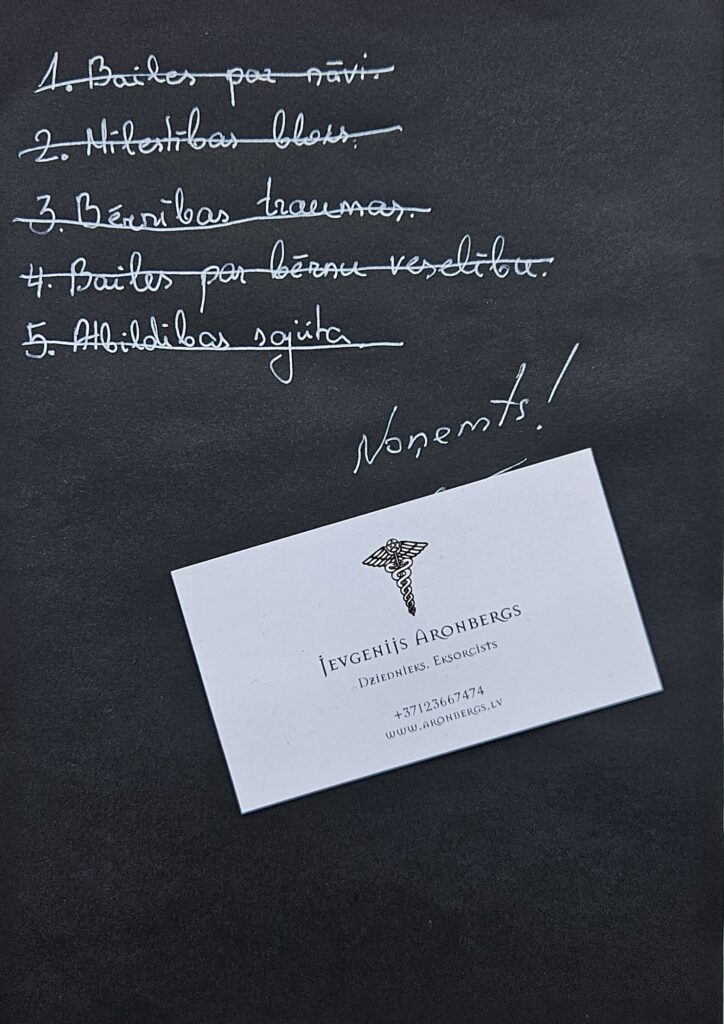 1. Bailes par nāvi.
2. Mīlestības bloks.
3. Bērnības traumas.
4. Bailes par bērnu veselību.
5. Atbildības sajūta
Noņemts!
Jevgenijs Aronbergs
Dziednieks, Eksorcists
+37123667474
www.aronbergs.lv